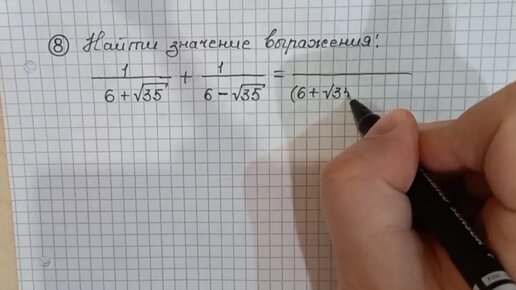 ⑧ Найти значение выражения:
1/(6+√35) + 1/(6-√35) =
(6+√3